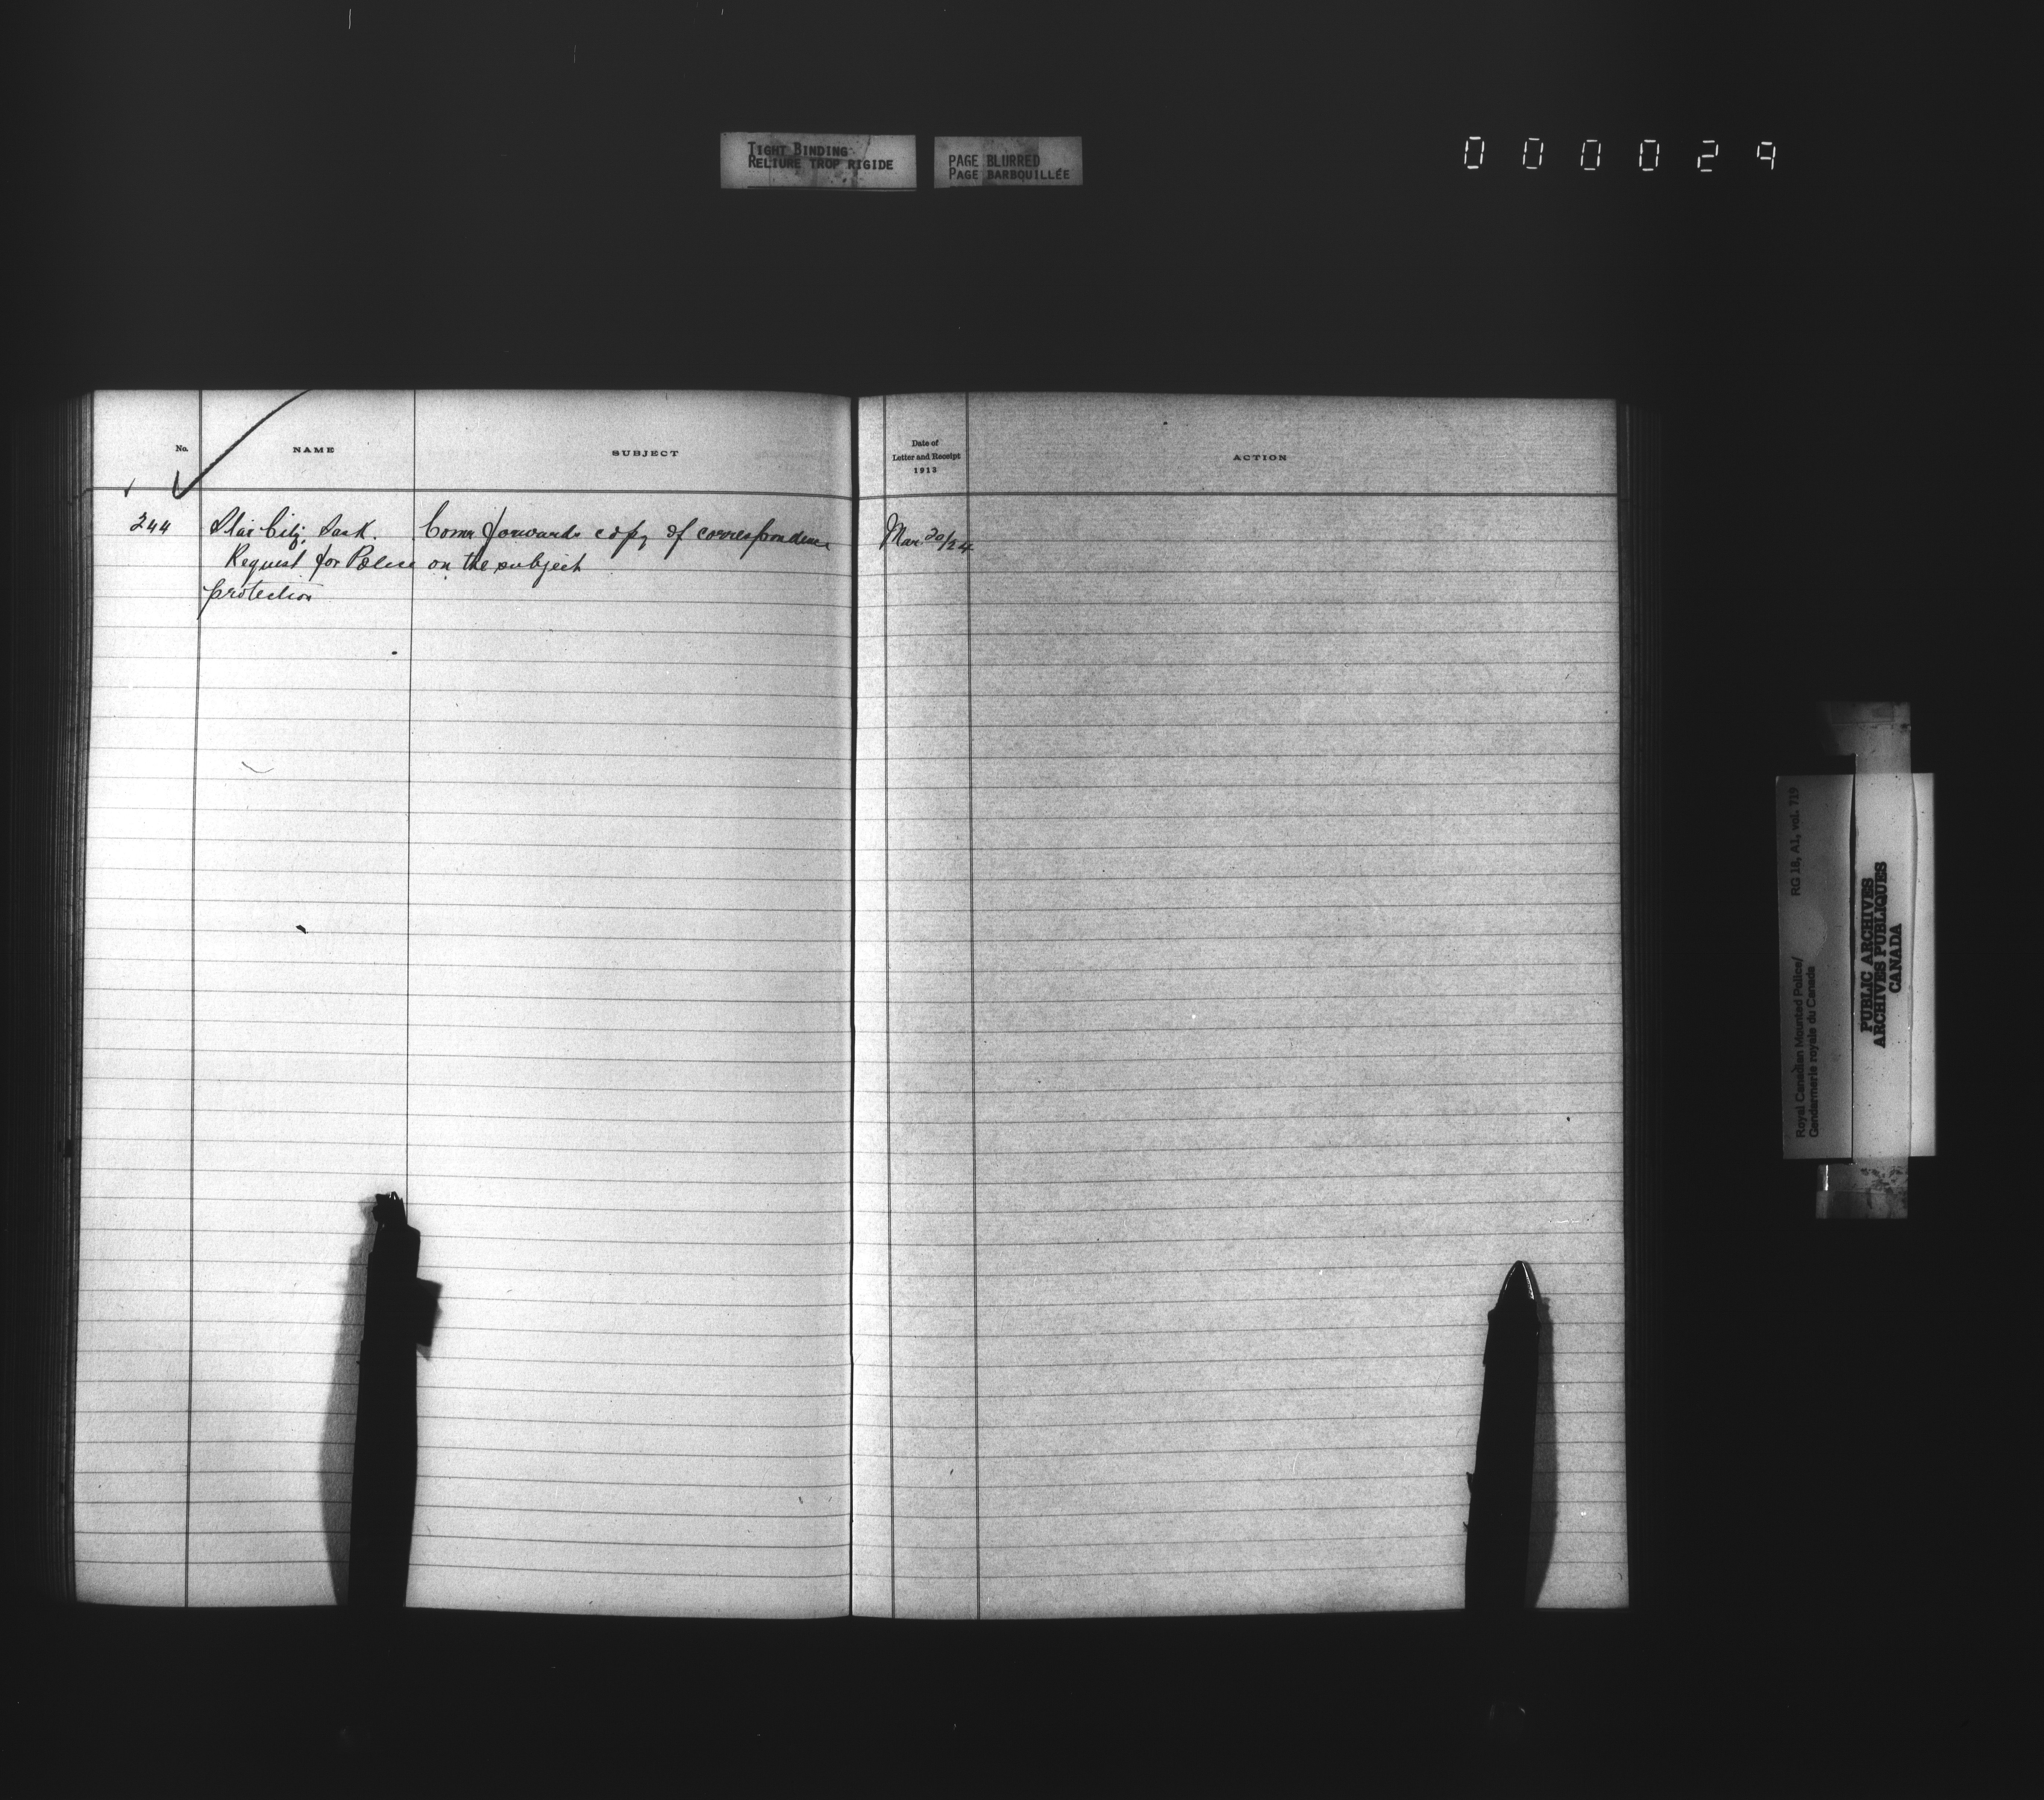 TIGHT BINDING
RELIURE TROP RIGIDE
PAGE BLURRED
PAGE BARBOUILLÉE
000029
No.
NAME
SUBJECT
Date of
Letter and Receipt
1913
ACTION
244 Star City, Sask. Comr forwards copy of correspondence Mar. 20/24
Request for Police on the subject
protection
Royal Canadian Mounted Police/ RG 18, A1, vol. 719
Gendarmerie royale du Canada
PUBLIC ARCHIVES
ARCHIVES PUBLIQUES
CANADA